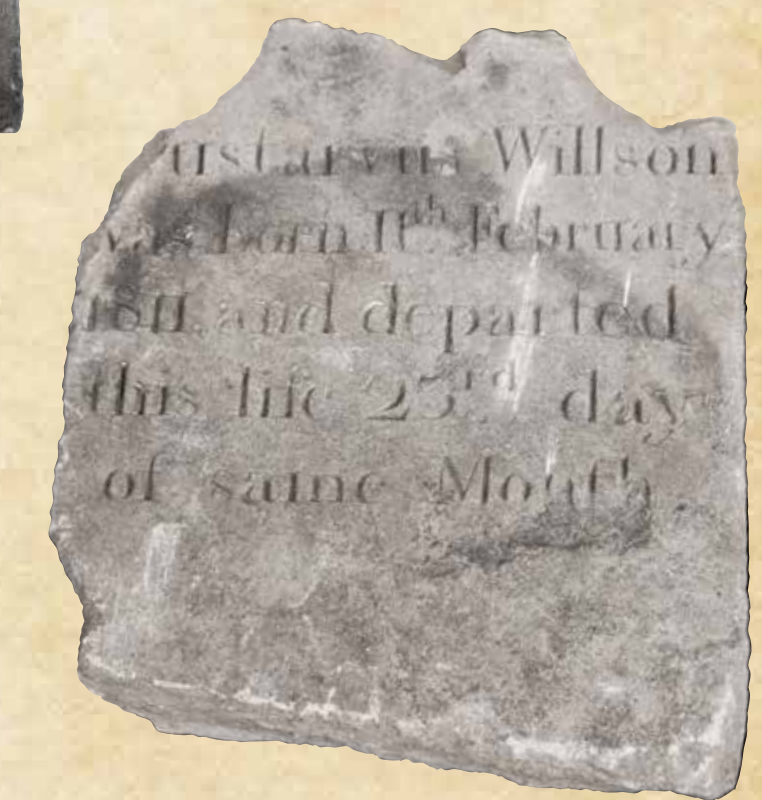 Gustarvus Willson
was born 11th February
1811 and departed
this life 23rd day
of same Month